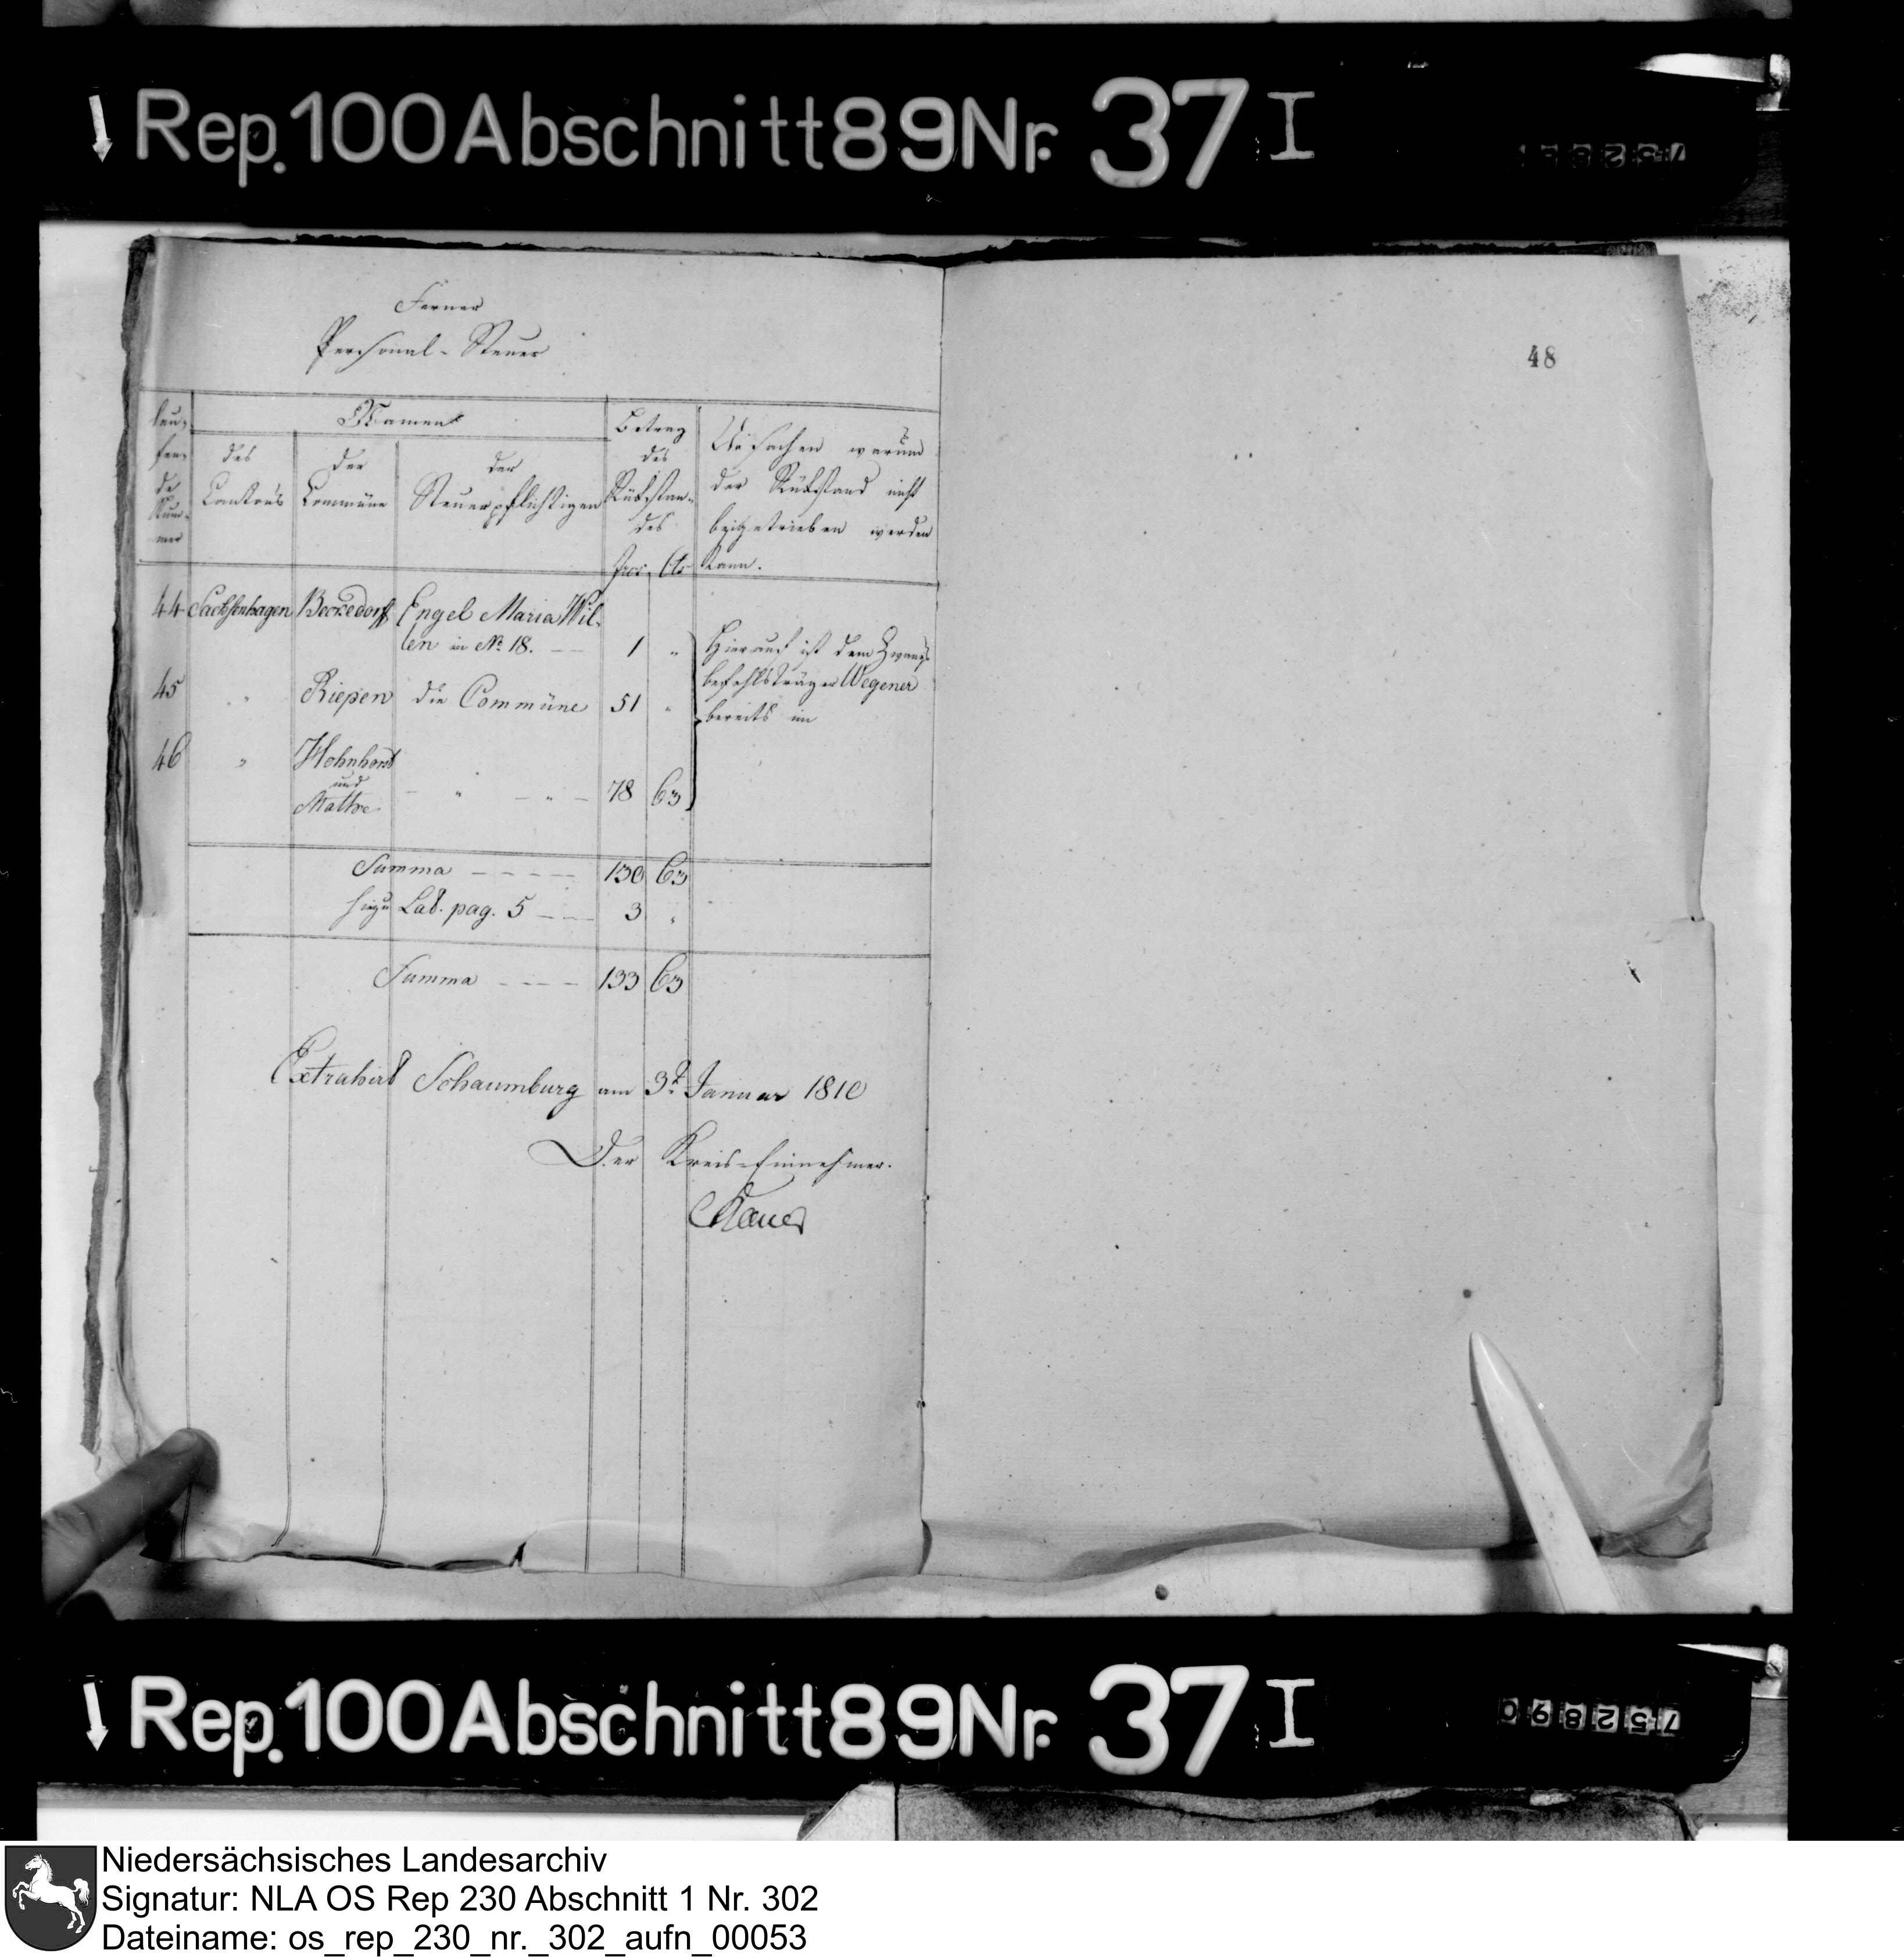 Rep. 100 Abschnitt 89 Nr. 37 I
Ferner
Personal-Steuer
48
lau-
fen-
de
Num-
mer
Namen
des
Cantons
der
Commüne
der
Steuerpflichtigen
Betrag
des
Rükstan-
des
Frcs. Cts
Ursachen warum
der Rükstand nicht
beigetrieben werden
kann.
44 Sachsenhagen Beckedorf Engel Maria Wil-
len in No 18. — 1 "
45 " Riepen die Commüne 51 "
Hierauf ist dem Zwangs-
befehlsträger Wegener
bereits im
46 " Hohnhorst
und
Mathe - " - " - 78 63
Summa - - - - - 130 63
hiezu Lat. pag. 5 - - - 3 "
Summa - - - - 133 63
Extrahirt Schaumburg am 3t Januar 1810
Der Kreis-Einnehmer.
Rep. 100 Abschnitt 89 Nr. 37 I
752890
Niedersächsisches Landesarchiv
Signatur: NLA OS Rep 230 Abschnitt 1 Nr. 302
Dateiname: os_rep_230_nr._302_aufn_00053